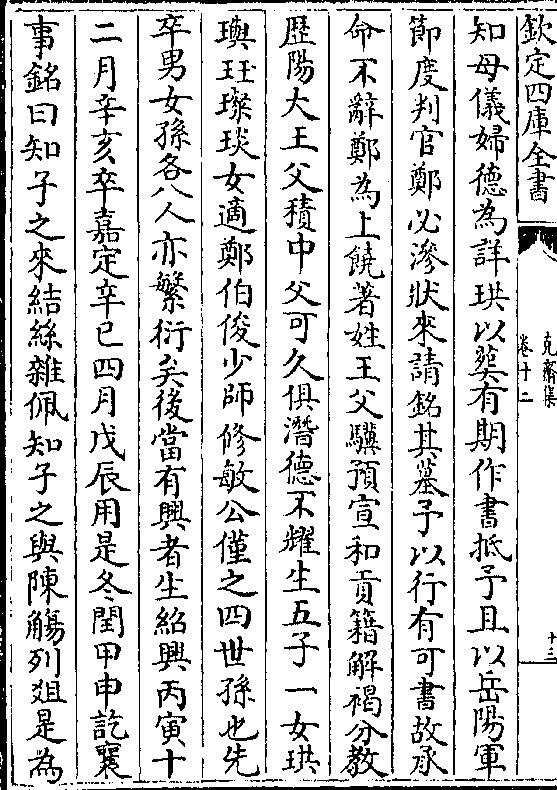 欽定四庫全書
克齋集
卷十二
十三
知母儀婦德為詳珙以葬有期作書抵予且以岳陽軍
節度判官鄭必滲狀來請銘其墓予以行有可書故承
命不辭鄭為上饒著姓王父驥預宣和貢籍解褐分教
歴陽大王父積中父可久俱潛德不耀生五子一女珙
璵珏璨琰女適鄭伯俊少師修敏公僅之四世孫也先
卒男女孫各八人亦繁衍矣後當有興者生紹興丙寅十
二月辛亥卒嘉定辛巳四月戊辰用是冬閏甲申訖襄
事銘曰知子之來結絲雜佩知子之與陳觴列俎是為